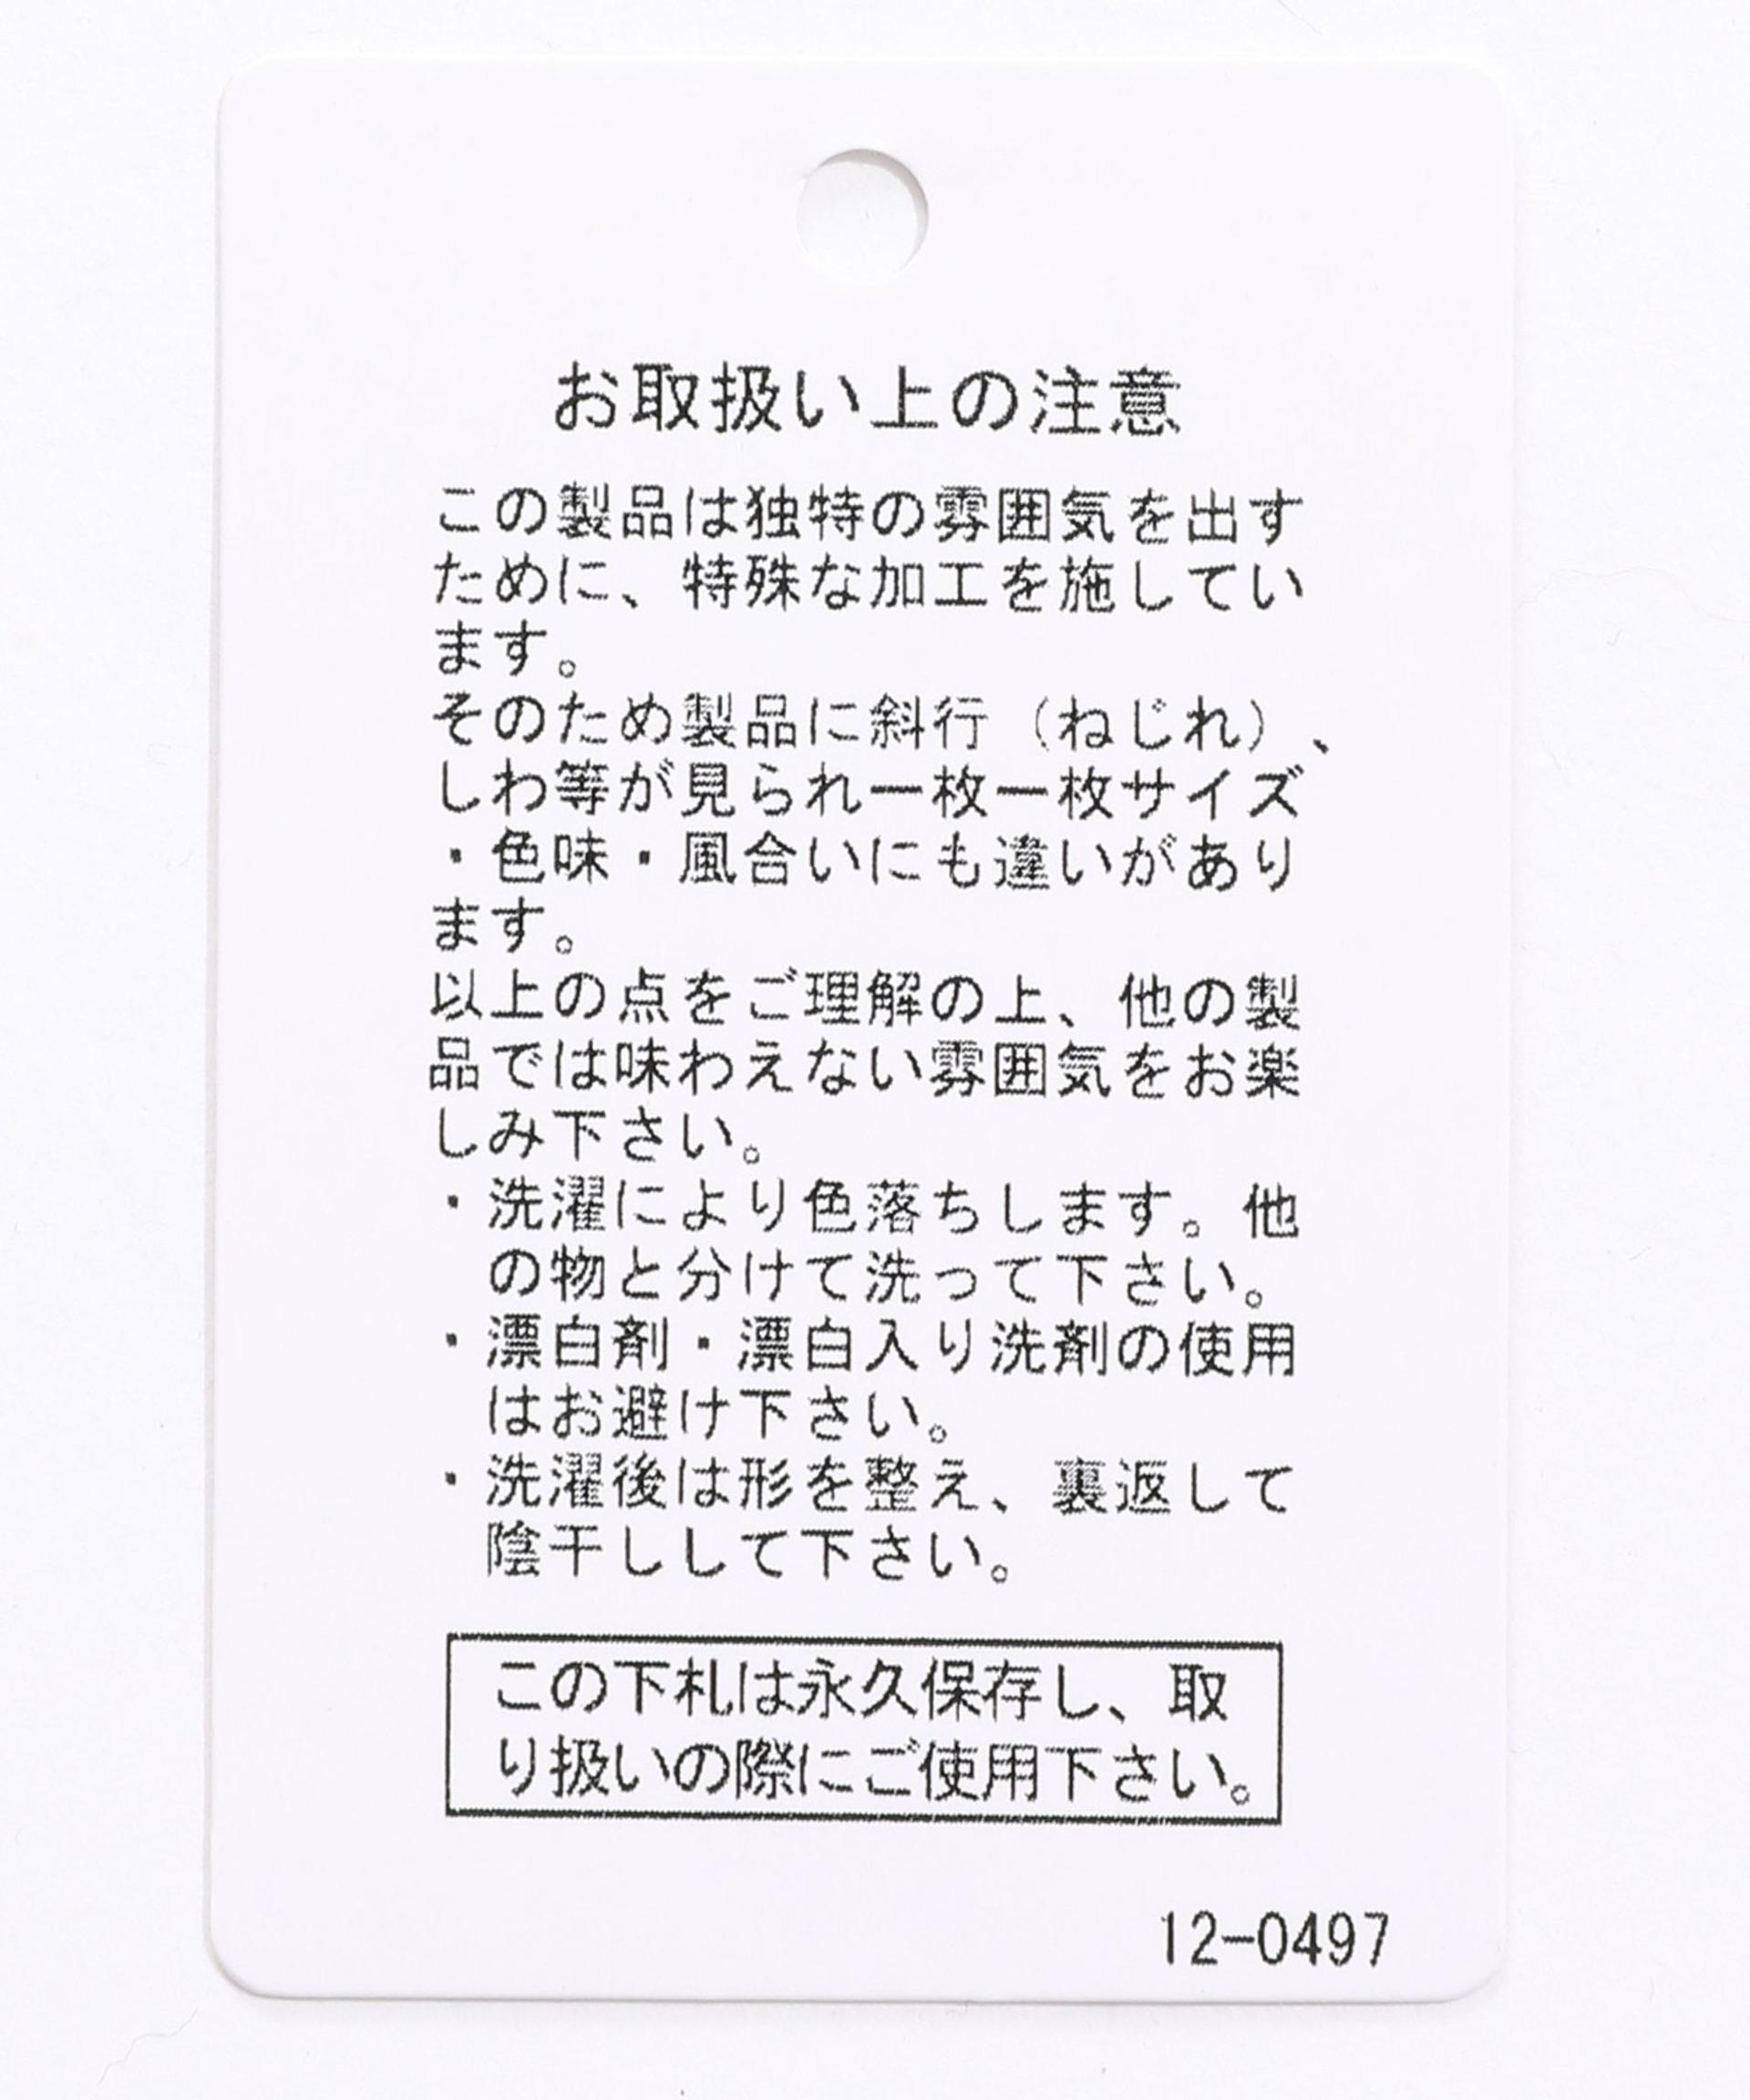 お取扱い上の注意
この製品は独特の雰囲気を出す
ために、特殊な加工を施してい
ます。
そのため製品に斜行（ねじれ）、
しわ等が見られ一枚一枚サイズ
・色味・風合いにも違いがあり
ます。
以上の点をご理解の上、他の製
品では味わえない雰囲気をお楽
しみ下さい。
・洗濯により色落ちします。他
の物と分けて洗って下さい。
・漂白剤・漂白入り洗剤の使用
はお避け下さい。
・洗濯後は形を整え、裏返して
陰干しして下さい。
この下札は永久保存し、取
り扱いの際にご使用下さい。
12-0497